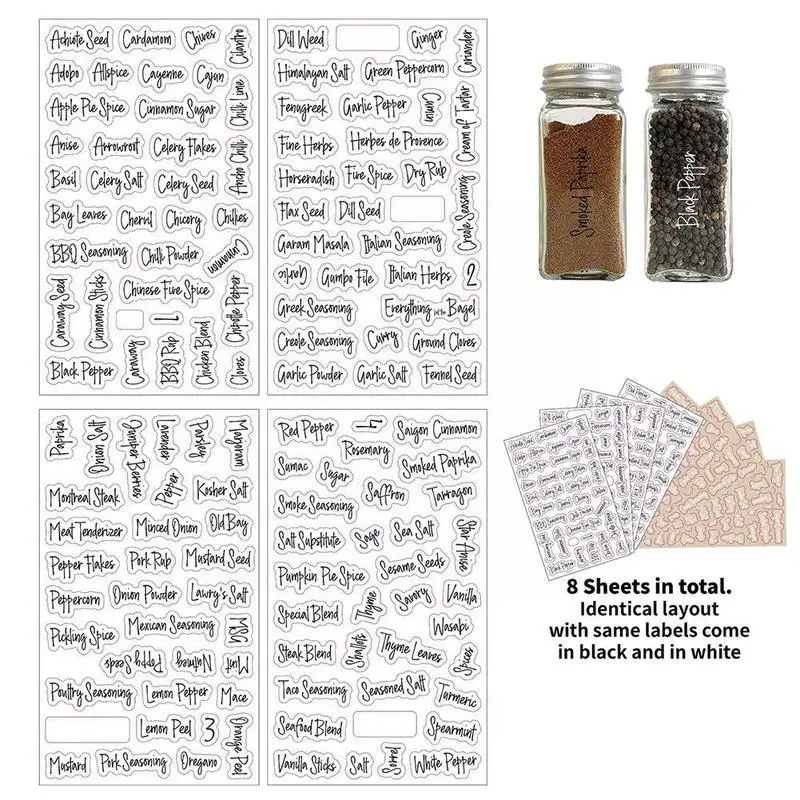 Achiote Seed Cardamom Chives Cilantro
Adobo Allspice Cayenne Cajun Chili Lime
Apple Pie Spice Cinnamon Sugar
Anise Arrowroot Celery Flakes Ancho Chili
Basil Celery Salt Celery Seed
Bay Leaves Chervil Chicory Chilies
BBQ Seasoning Chili Powder Cinnamon
Caraway Seed Cinnamon Sticks Chinese Five Spice Chipotle Pepper
1
Black Pepper Caraway BBQ Rub Chicken Blend Cloves
Dill Weed Ginger Coriander
Himalayan Salt Green Peppercorn
Fenugreek Garlic Pepper Cumin Cream of Tartar
Fine Herbs Herbes de Provence
Horseradish Five Spice Dry Rub
Flax Seed Dill Seed Creole Seasoning
Garam Masala Italian Seasoning
Garlic Gumbo File Italian Herbs 2
Greek Seasoning Everything but the Bagel
Creole Seasoning Curry Ground Cloves
Garlic Powder Garlic Salt Fennel Seed
Smoked Paprika
Black Pepper
Paprika Onion Salt Juniper Berries Lavender Parsley Marjoram
Montreal Steak Pepper Kosher Salt
Meat Tenderizer Minced Onion Old Bay
Pepper Flakes Pork Rub Mustard Seed
Peppercorn Onion Powder Lawry's Salt
Pickling Spice Mexican Seasoning MSG
Poppy Seeds Nutmeg Mint
Poultry Seasoning Lemon Pepper Mace
Lemon Peel 3 Orange Peel
Mustard Pork Seasoning Oregano
Red Pepper 4 Saigon Cinnamon
Sumac Sugar Rosemary Smoked Paprika
Smoke Seasoning Saffron Tarragon
Salt Substitute Sage Sea Salt Star Anise
Pumpkin Pie Spice Sesame Seeds
Special Blend Thyme Savory Vanilla
Wasabi
Steak Blend Shallots Thyme Leaves Spices
Taco Seasoning Seasoned Salt Turmeric
Seafood Blend Spearmint
Vanilla Sticks Salt Sorrel White Pepper
8 Sheets in total.
Identical layout
with same labels come
in black and in white